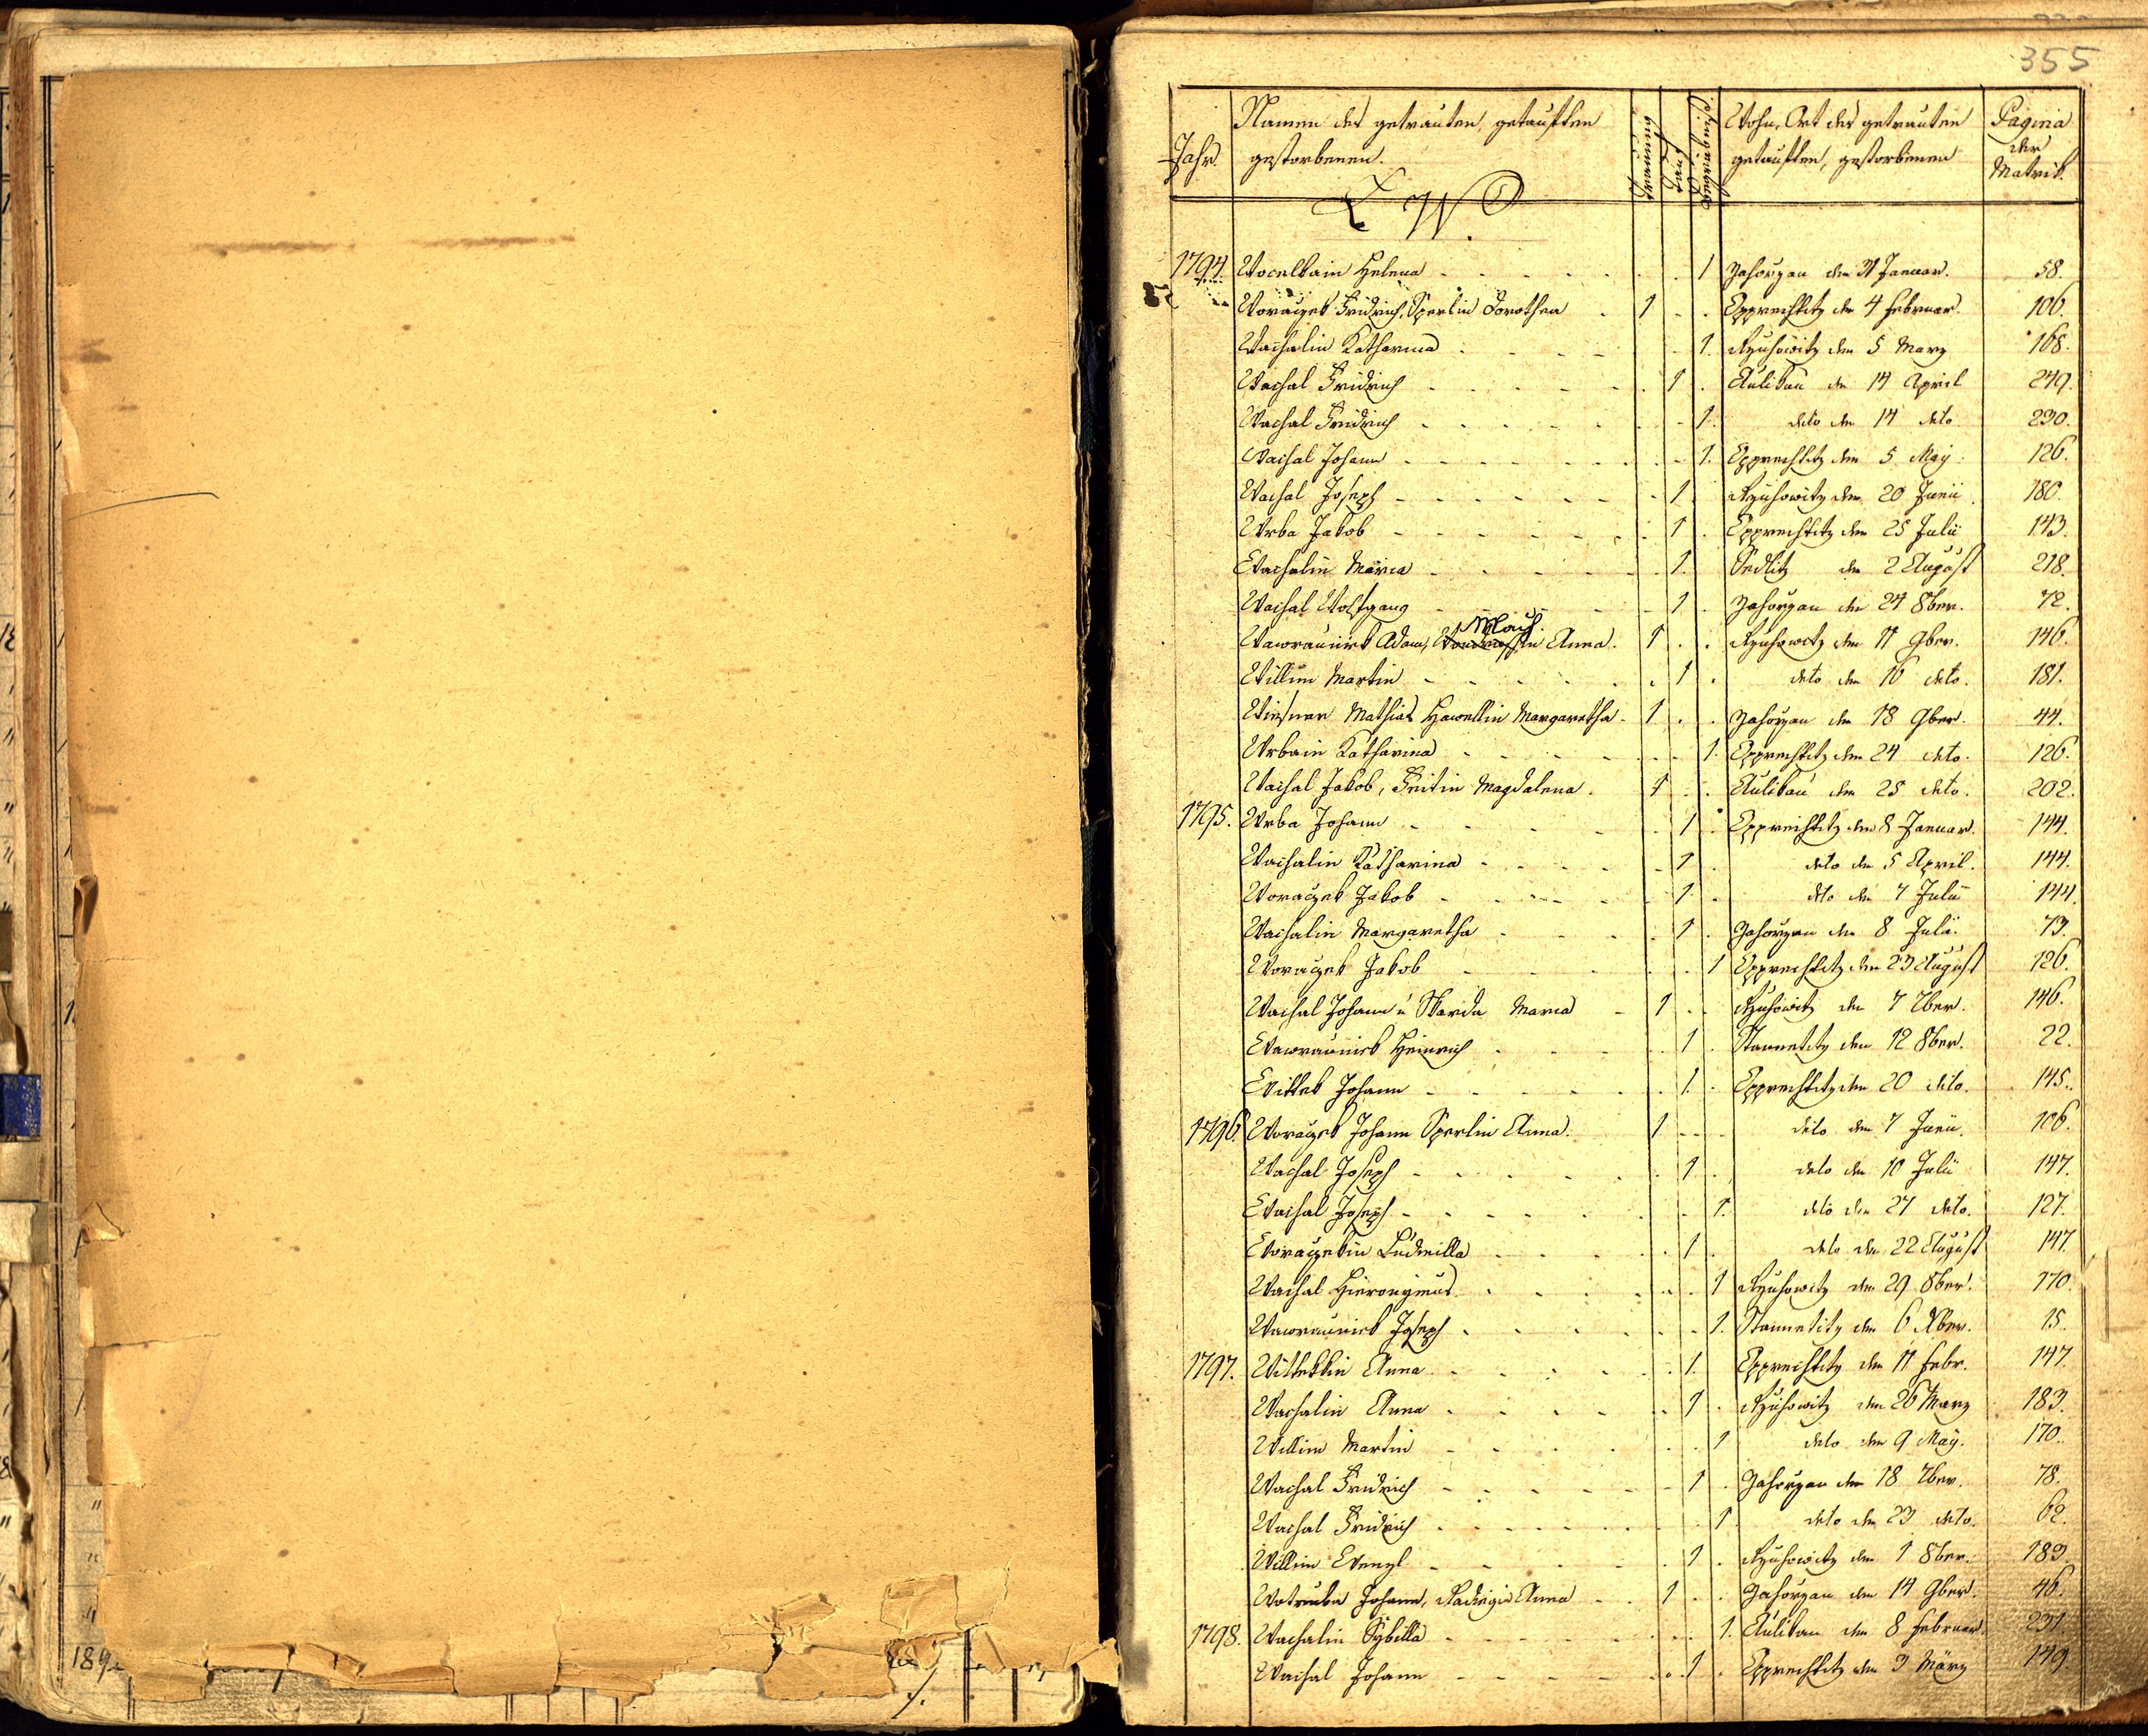 355
Jahr. Namen der getrauten, getauften gestorbenen. Trauung Tauf Wohn-Ort des getrauten getauften, gestorbenen Pagina der Matrik.
W.
1794. Wocelkain Helena 1 Zahorzan den 31 Januar. 58.
Woraczek Fridrich, Sperlin Dorothea 1 Epprechtitz den 4 Februar. 106.
Wachalin Katharina 1. Rzuhowitz den 5 Marz 168.
Wachal Fridrich 1 Aulikau den 14 April 249.
Wachal Fridrich 1. deto den 14 deto 230.
Wachal Johann 1. Epprechtitz den 5 May. 126.
Wachal Joseph 1 Rzuhowitz den 20 Junii 180.
Wrba Jakob 1 Epprechtitz den 25 Julii 143.
Wachalin Maria 1. Sedlitz den 2 August 218.
Wachal Wolfgang 1 Zahorzan den 24 8ber. 72.
Wawraunick Adam, Mlachin Anna. 1 Rzuhowitz den 11 9ber. 146.
Willim Martin 1 deto den 16 deto. 181.
Wiesner Mathias Hawellin Margaretha 1 Zahorzan den 18 9ber. 44.
Wrbain Katharina 1. Epprechtitz den 24 deto. 126.
Wachal Jakob, Feitin Magdalena. 1 Aulikau den 25 deto. 202.
1795. Wrba Johann 1 Epprechtitz den 8 Januar. 144.
Wachalin Katharina 1 deto den 5 April. 144.
Woraczek Jakob 1. deto den 7 Julii 144.
Wachalin Margaretha 1 Zahorzan den 8 Julii. 73.
Woraczek Jakob 1 Epprechtitz den 23 August 126.
Wachal Johann u Skarda Maria 1 Rzuhowitz den 7 7ber. 146.
Wawraunick Heinrich 1 Stannetitz den 12 8ber. 22.
Wittek Johann 1. Epprechtitz den 20 deto. 145.
1796. Woraczek Johann Sperlin Anna. 1 deto den 7 Junii. 106.
Wachal Joseph 1 deto den 10 Julii 147.
Wachal Joseph 1. deto den 27 deto. 127.
Woraczekin Ludmilla 1 deto den 22 August 147.
Wachal Hieronymus 1 Rzuhowitz den 29 8ber. 170.
Wawraunick Joseph 1. Stannetitz den 6 Xber. 15.
1797. Wittekkin Anna 1. Epprechtitz den 11 Febr. 147.
Wachalin Anna 1 Rzuhowitz den 26 Marz 183.
Willim Martin 1 deto den 9 May. 170.
Wachal Fridrich 1 Zahorzan den 18 7ber. 78.
Wachal Fridrich 1 deto den 23 deto. 62.
Willim Wenzl 1 Rzuhowitz den 1 8ber. 183.
Wotruba Johann, Anna 1 Zahorzan den 14 9ber. 46.
1798. Wachalin Sybilla 1. Aulikau den 8 Februar. 231.
Wachal Johann 1 Epprechtitz den 3 März 149.